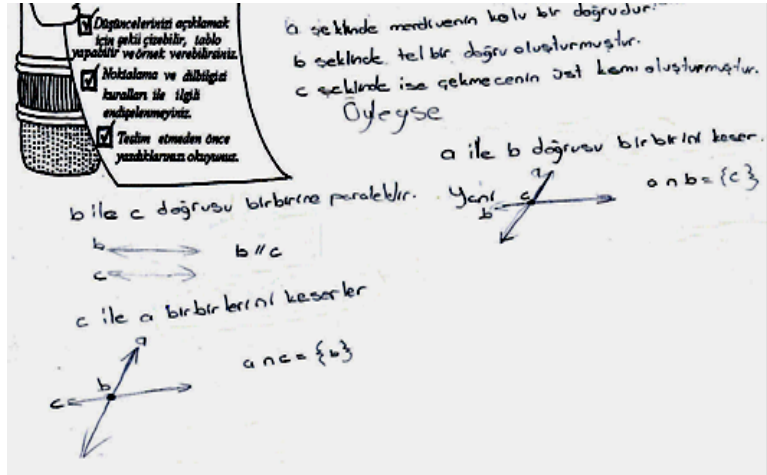 Düşüncelerinizi açıklamak
için şekil çizebilir, tablo
yapabilir ve örnek verebilirsiniz.
Noktalama ve dilbilgisi
kuralları ile ilgili
endişelenmeyiniz.
Teslim etmeden önce
yazdıklarınızı okuyunuz.
a şeklinde merdivenin kolu bir doğrudur.
b şeklinde tel bir doğru oluşturmuştur.
c şeklinde ise çekmecenin üst kısmı oluşturmuştur.
Öyleyse
a ile b doğrusu birbirini keser.
Yani
a
c
b
a ∩ b = {c}
b ile c doğrusu birbirine paraleldir.
b
c
b // c
c ile a birbirlerini keserler
a
b
c
a ∩ c = {b}